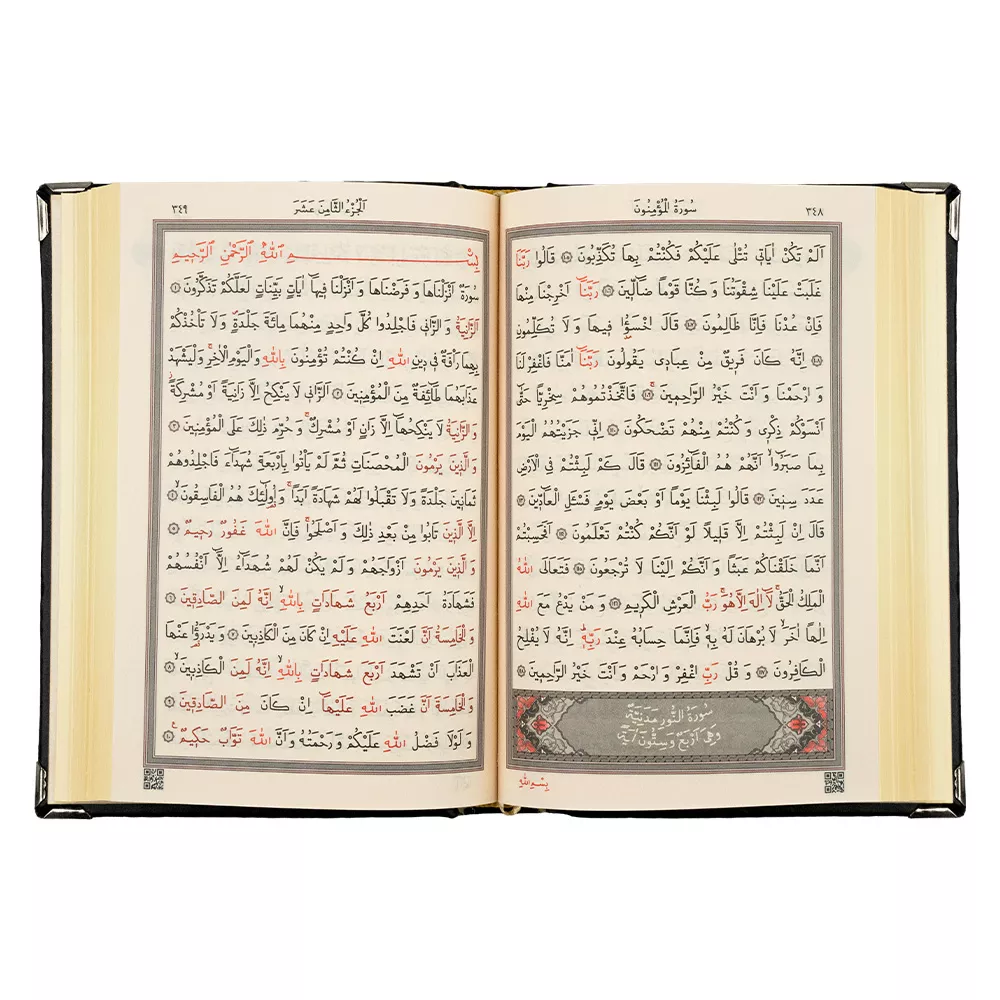 ٣٤٨ سُورَةُ الْمُؤْمِنُونَ
اَلَمْ تَكُنْ اٰيَاتٖي تُتْلٰى عَلَيْكُمْ فَكُنْتُمْ بِهَا تُكَذِّبُونَ ﴿١٠٥﴾ قَالُوا رَبَّنَا
غَلَبَتْ عَلَيْنَا شِقْوَتُنَا وَكُنَّا قَوْمًا ضَٓالّٖينَ ﴿١٠٦﴾ رَبَّنَٓا اَخْرِجْنَا مِنْهَا
فَاِنْ عُدْنَا فَاِنَّا ظَالِمُونَ ﴿١٠٧﴾ قَالَ اخْسَؤُ۫ا فٖيهَا وَلَا تُكَلِّمُونِ
﴿١٠٨﴾ اِنَّهُ كَانَ فَرٖيقٌ مِنْ عِبَادٖي يَقُولُونَ رَبَّنَٓا اٰمَنَّا فَاغْفِرْ لَنَا
وَارْحَمْنَا وَاَنْتَ خَيْرُ الرَّاحِمٖينَ ﴿١٠٩﴾ فَاتَّخَذْتُمُوهُمْ سِخْرِيًّا حَتّٰٓى
اَنْسَوْكُمْ ذِكْرٖي وَكُنْتُمْ مِنْهُمْ تَضْحَكُونَ ﴿١١٠﴾ اِنّٖي جَزَيْتُهُمُ الْيَوْمَ
بِمَا صَبَرُٓوا اَنَّهُمْ هُمُ الْفَٓائِزُونَ ﴿١١١﴾ قَالَ كَمْ لَبِثْتُمْ فِي الْاَرْضِ
عَدَدَ سِنٖينَ ﴿١١٢﴾ قَالُوا لَبِثْنَا يَوْمًا اَوْ بَعْضَ يَوْمٍ فَسْـَٔلِ الْعَٓادّٖينَ ﴿١١٣﴾
قَالَ اِنْ لَبِثْتُمْ اِلَّا قَلٖيلًا لَوْ اَنَّكُمْ كُنْتُمْ تَعْلَمُونَ ﴿١١٤﴾ اَفَحَسِبْتُمْ
اَنَّمَا خَلَقْنَاكُمْ عَبَثًا وَاَنَّكُمْ اِلَيْنَا لَا تُرْجَعُونَ ﴿١١٥﴾ فَتَعَالَى اللّٰهُ
الْمَلِكُ الْحَقُّۚ لَٓا اِلٰهَ اِلَّا هُوَۚ رَبُّ الْعَرْشِ الْكَرٖيمِ ﴿١١٦﴾ وَمَنْ يَدْعُ مَعَ اللّٰهِ
اِلٰهًا اٰخَرَۙ لَا بُرْهَانَ لَهُ بِهٖۙ فَاِنَّمَا حِسَابُهُ عِنْدَ رَبِّهٖۜ اِنَّهُ لَا يُفْلِحُ
الْكَافِرُونَ ﴿١١٧﴾ وَقُلْ رَبِّ اغْفِرْ وَارْحَمْ وَاَنْتَ خَيْرُ الرَّاحِمٖينَ ﴿١١٨﴾
سُورَةُ النُّورِ مَدَنِيَّةٌ
وَهِيَ اَرْبَعٌ وَسِتُّونَ اٰيَةً
بِسْمِ اللّٰهِ
اَلْجُزْءُ الثَّامِنَ عَشَرَ ٣٤٩
بِسْمِ اللّٰهِ الرَّحْمٰنِ الرَّحٖيمِ
سُورَةٌ اَنْزَلْنَاهَا وَفَرَضْنَاهَا وَاَنْزَلْنَا فٖيهَٓا اٰيَاتٍ بَيِّنَاتٍ لَعَلَّكُمْ تَذَكَّرُونَ ﴿١﴾
اَلزَّانِيَةُ وَالزَّانٖي فَاجْلِدُوا كُلَّ وَاحِدٍ مِنْهُمَا مِائَةَ جَلْدَةٍࣕ وَلَا تَأْخُذْكُمْ
بِهِمَا رَأْفَةٌ فٖي دٖينِ اللّٰهِ اِنْ كُنْتُمْ تُؤْمِنُونَ بِاللّٰهِ وَالْيَوْمِ الْاٰخِرِۚ وَلْيَشْهَدْ
عَذَابَهُمَا طَٓائِفَةٌ مِنَ الْمُؤْمِنٖينَ ﴿٢﴾ اَلزَّانٖي لَا يَنْكِحُ اِلَّا زَانِيَةً اَوْ مُشْرِكَةًؗ
وَالزَّانِيَةُ لَا يَنْكِحُهَٓا اِلَّا زَانٍ اَوْ مُشْرِكٌۚ وَحُرِّمَ ذٰلِكَ عَلَى الْمُؤْمِنٖينَ ﴿٣﴾
وَالَّذٖينَ يَرْمُونَ الْمُحْصَنَاتِ ثُمَّ لَمْ يَأْتُوا بِاَرْبَعَةِ شُهَدَٓاءَ فَاجْلِدُوهُمْ
ثَمَانٖينَ جَلْدَةً وَلَا تَقْبَلُوا لَهُمْ شَهَادَةً اَبَدًاۚ وَاُو۬لٰٓئِكَ هُمُ الْفَاسِقُونَ ﴿٤﴾
اِلَّا الَّذٖينَ تَابُوا مِنْ بَعْدِ ذٰلِكَ وَاَصْلَحُواۚ فَاِنَّ اللّٰهَ غَفُورٌ رَحٖيمٌ ﴿٥﴾
وَالَّذٖينَ يَرْمُونَ اَزْوَاجَهُمْ وَلَمْ يَكُنْ لَهُمْ شُهَدَٓاءُ اِلَّٓا اَنْفُسُهُمْ
فَشَهَادَةُ اَحَدِهِمْ اَرْبَعُ شَهَادَاتٍ بِاللّٰهِۙ اِنَّهُ لَمِنَ الصَّادِقٖينَ ﴿٦﴾
وَالْخَامِسَةُ اَنَّ لَعْنَتَ اللّٰهِ عَلَيْهِ اِنْ كَانَ مِنَ الْكَاذِبٖينَ ﴿٧﴾ وَيَدْرَؤُ۬ا عَنْهَا
الْعَذَابَ اَنْ تَشْهَدَ اَرْبَعَ شَهَادَاتٍ بِاللّٰهِۙ اِنَّهُ لَمِنَ الْكَاذِبٖينَۙ ﴿٨﴾
وَالْخَامِسَةَ اَنَّ غَضَبَ اللّٰهِ عَلَيْهَٓا اِنْ كَانَ مِنَ الصَّادِقٖينَ ﴿٩﴾
وَلَوْلَا فَضْلُ اللّٰهِ عَلَيْكُمْ وَرَحْمَتُهُ وَاَنَّ اللّٰهَ تَوَّابٌ حَكٖيمٌ۟ ﴿١٠﴾